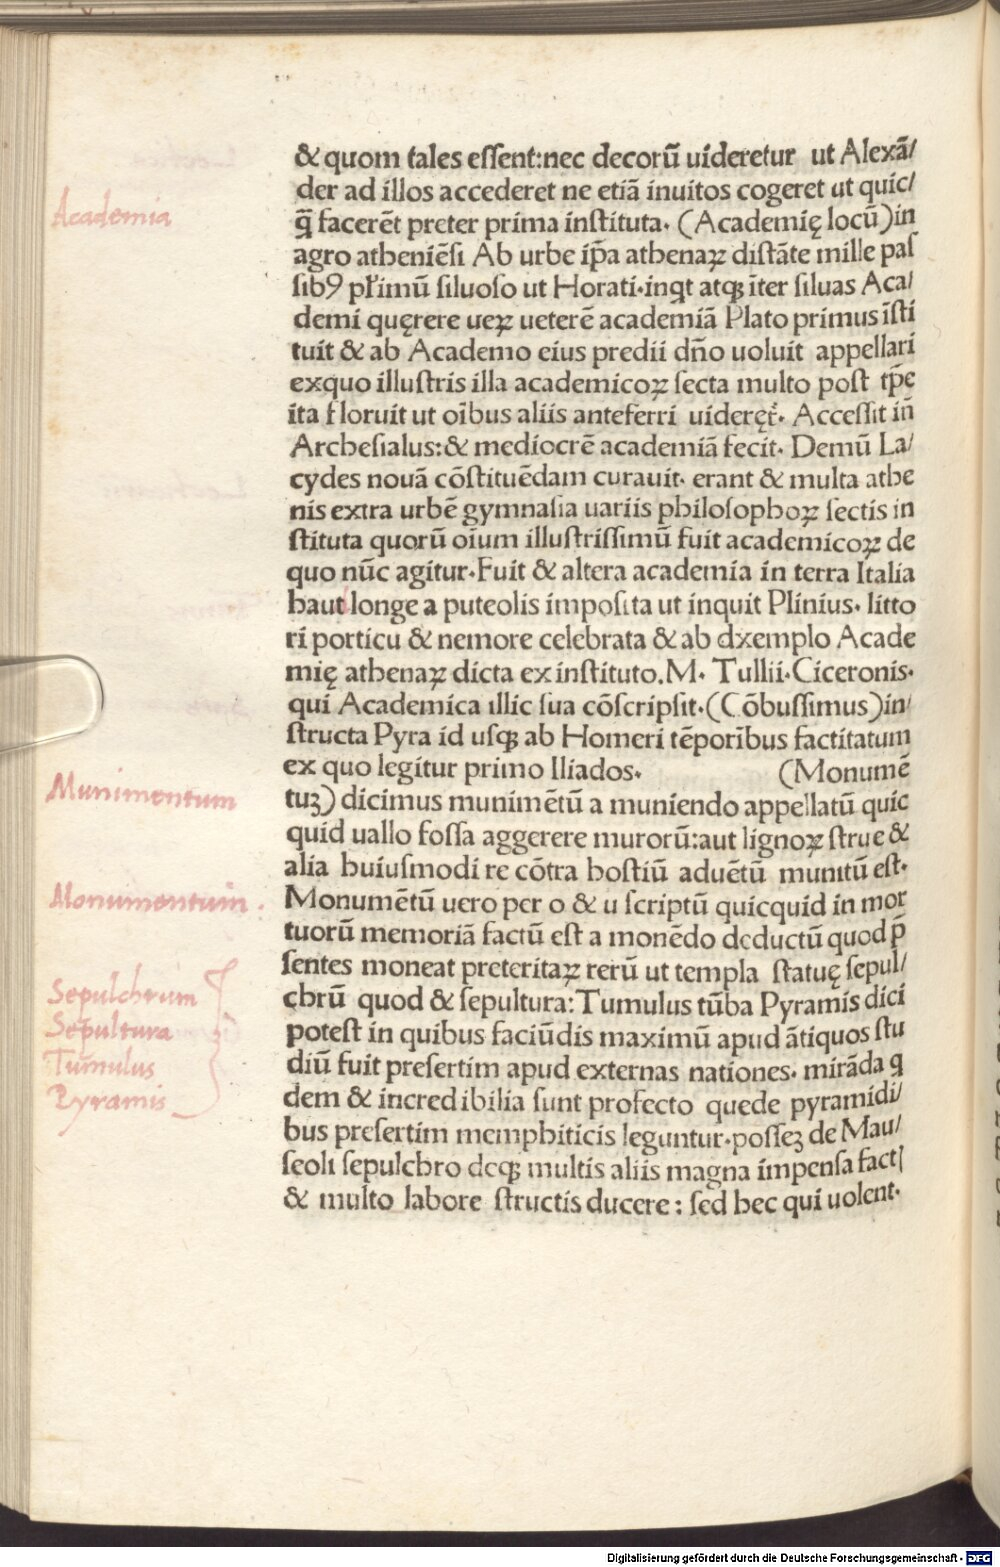 & quom tales essent:nec decorū uideretur ut Alexā/
der ad illos accederet ne etiā inuitos cogeret ut quic/
q̄ facerēt preter prima instituta. (Academię locū) in
agro atheniēsi Ab urbe ip̄a athenaꝝ distāte mille pas
sibꝯ plimū siluoso ut Horati.inqt atqꝫ iter siluas Aca/
demi quęrere ueꝝ ueterē academiā Plato primus īsti
tuit & ab Academo eius predii dño uoluit appellari
exquo illustris illa academicoꝝ secta multo post tp̄e
ita floruit ut oībus aliis anteferri uideręt. Accessit iñ
Archesialus:& mediocrē academiā fecit. Demū La/
cydes nouā cōstituēdam curauit. erant & multa athe
nis extra urbē gymnasia uariis philosophoꝝ sectis in
stituta quorū oīum illustrissimū fuit academicoꝝ de
quo nūc agitur.Fuit & altera academia in terra Italia
haut longe a puteolis imposita ut inquit Plinius. litto
ri porticu & nemore celebrata & ab dxemplo Acade
mię athenaꝝ dicta ex instituto.M. Tullii.Ciceronis.
qui Academica illic sua cōscripsit.(Cōbussimus)in/
structa Pyra id usqꝫ ab Homeri tēporibus factitatum
ex quo legitur primo Iliados. (Monumē
tuꝫ) dicimus munimētū a muniendo appellatū quic
quid uallo fossa aggerere murorū:aut lignoꝝ strue &
alia huiusmodi re cōtra hostiū aduētū munitū est.
Monumētū uero per o & u scriptū quicquid in mor
tuorū memoriā factū est a monēdo deductū quod p̄
sentes moneat preteritaꝝ rerū ut templa statuę sepul/
chrū quod & sepultura: Tumulus tūba Pyramis dici
potest in quibus faciūdis maximū apud ātiquos stu
diū fuit presertim apud externas nationes. mirāda q
dem & incredibilia sunt profecto quede pyramidi/
bus presertim memphiticis leguntur.posseꝫ de Mau/
seoli sepulchro deqꝫ multis aliis magna impensa fact|
& multo labore structis ducere : sed hec qui uolent.
Academia
Munimentum
Monumentum.
Sepulchrum
Sepultura
Tumulus
Pyramis
Digitalisierung gefördert durch die Deutsche Forschungsgemeinschaft - DFG